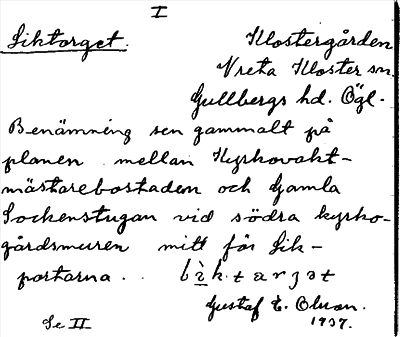 I
Liktorget. Klostergården
Vreta Kloster sn.
Gullbergs hd. Ögl.
Benämning sen gammalt på
planen mellan Kyrkovakt-
mästarebostaden och Gamla
Sockenstugan vid södra kyrko-
gårdsmuren mitt för Lik-
portarna. .
Gustaf E. Olson.
1937.
Se II